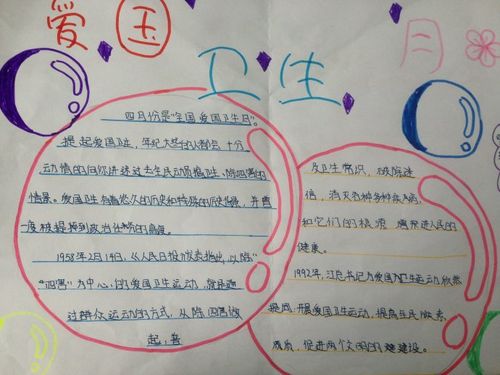 爱国
卫生
月
四月份是"全国爱国卫生月"。
提起爱国卫生,年纪大些的人都会十分
动情的向你讲述过去全民动员搞卫生、除四害的
情景。爱国卫生有着悠久的历史和特殊的历史情景,并曾
一度被提到政治任务的高度。
1958年2月14日,《人民日报》发表指出,以除
"四害"为中心的爱国卫生运动,就是通
过群众运动的方式,从除四害做
起,普
及卫生常识,破除迷
信,消灭各种多种疾病
和它们的根源,增进人民的
健康。
1992年,江总书记为爱国卫生运动欣然
提词,开展爱国卫生运动,提高全民
素质,促进两个文明的建设。